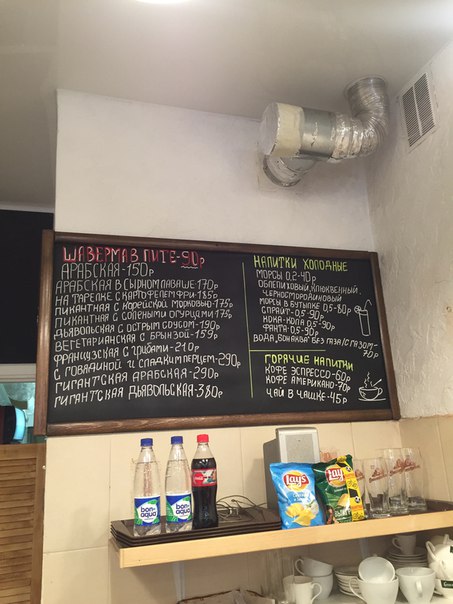 ШАВЕРМА В ПИТЕ-90р
АРАБСКАЯ-150р
АРАБСКАЯ В СЫРНОМ ЛАВАШЕ 170р
НА ТАРЕЛКЕ С КАРТОФЕЛЕМ ФРИ-185р
ПИКАНТНАЯ С КОРЕЙСКОЙ МОРКОВЬЮ-175р
ПИКАНТНАЯ С СОЛЕНЫМИ ОГУРЦАМИ 175р
ДЬЯВОЛЬСКАЯ С ОСТРЫМ СОУСОМ-190р
ВЕГЕТАРИАНСКАЯ С БРЫНЗОЙ-159р
ФРАНЦУЗСКАЯ С ГРИБАМИ-210р
С ГОВЯДИНОЙ И СЛАДКИМ ПЕРЦЕМ-290р
ГИГАНТСКАЯ АРАБСКАЯ-290р
ГИГАНТСКАЯ ДЬЯВОЛЬСКАЯ-380р
НАПИТКИ ХОЛОДНЫЕ
МОРСЫ 0,2-40р
ОБЛЕПИХОВЫЙ, КЛЮКВЕННЫЙ,
ЧЕРНОСМОРДИНОВЫЙ
МОРСЫ В БУТЫЛКЕ 0,5-80р
СПРАЙТ-0,5-90р
КОКА-КОЛА 0,5-90р
ФАНТА-0,5-90р
ВОДА "БОНАКВА" БЕЗ ГАЗА/С ГАЗОМ-
70р
ГОРЯЧИЕ НАПИТКИ
КОФЕ ЭСПРЕССО-60р
КОФЕ АМЕРИКАНО-70р
ЧАЙ В ЧАШКЕ-45р
bon
aqua
bon
aqua
Lay's
Lay's